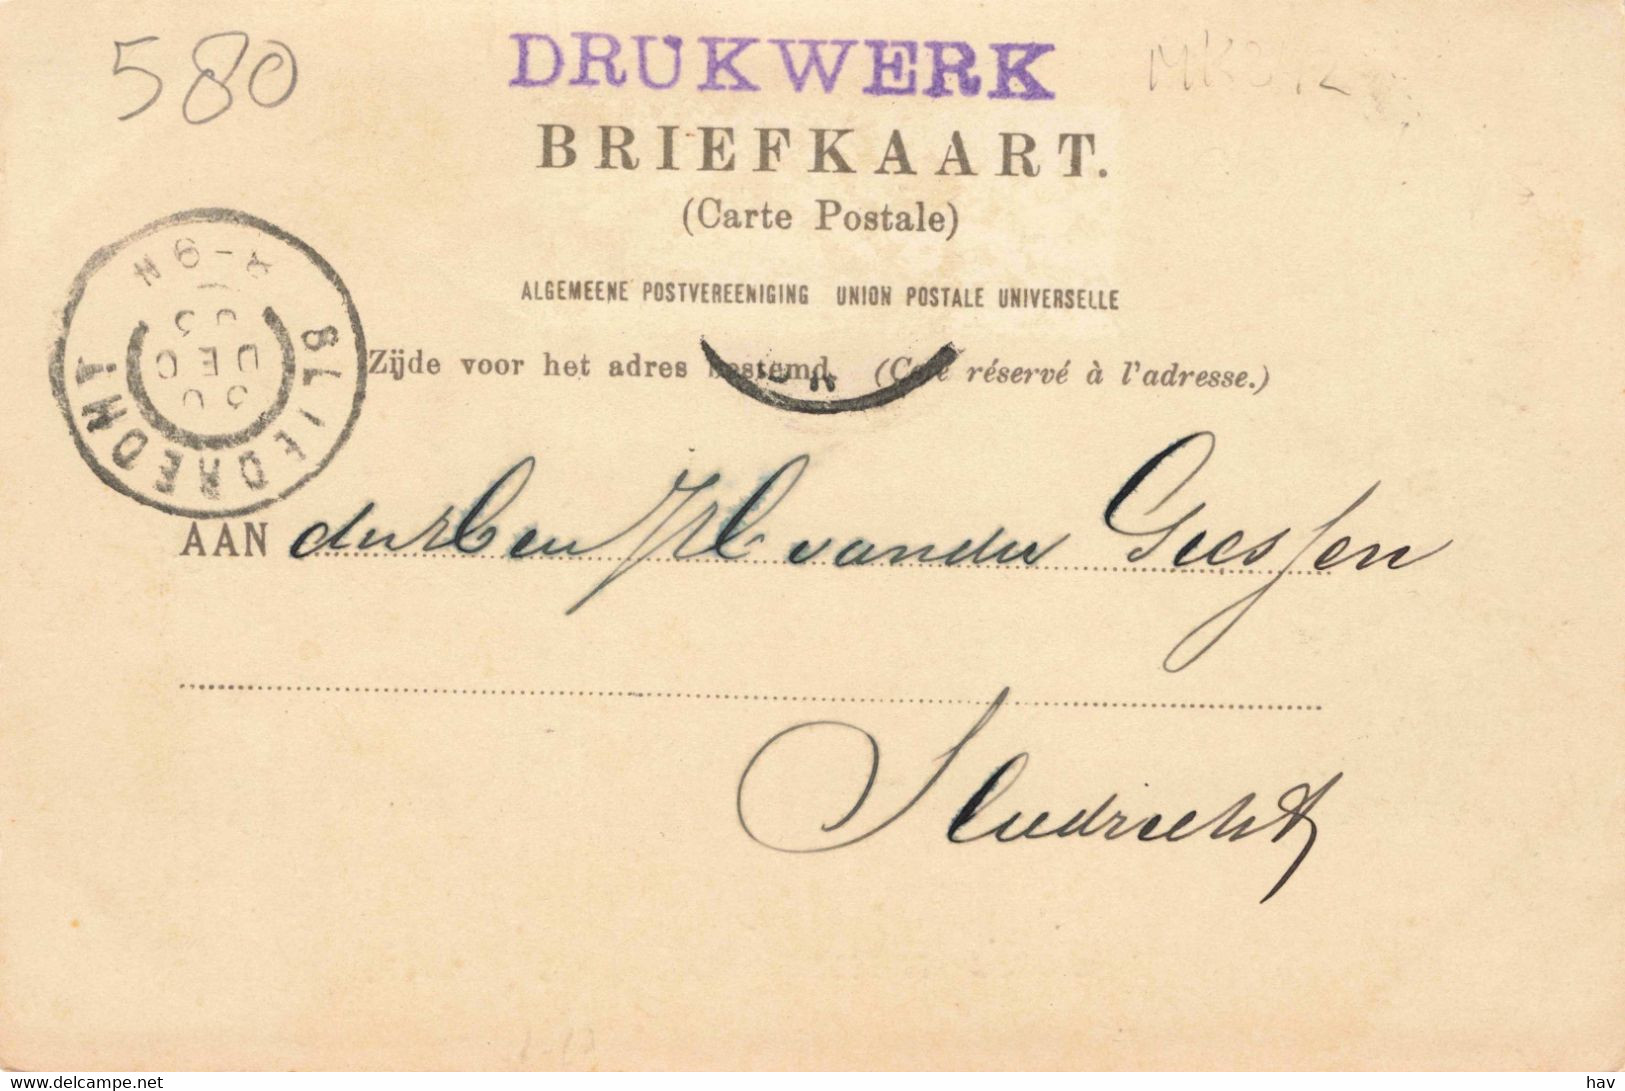 580
DRUKWERK
BRIEFKAART.
(Carte Postale)
ALGEMEENE POSTVEREENIGING UNION POSTALE UNIVERSELLE
Zijde voor het adres bestemd. (Côté réservé à l'adresse.)
SLIEDRECHT
30
DEC
03
8-9N
AAN den Heer van der Giessen
Sliedrecht
www.delcampe.net
hav